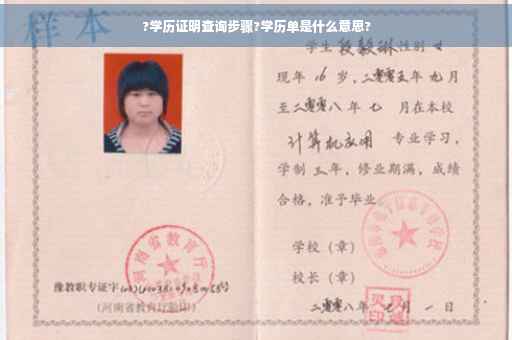 ?学历证明查询步骤?学历单是什么意思?
样本
学生 段毅琳 性别 女
现年 16 岁，二零零五年 九 月
至二零零八年 七 月在本校
计算机应用 专业学习，
学制 三 年，修业期满，成绩
合格，准予毕业
学校（章）
校长（章）
二零零八年 七 月 一 日
河南省教育厅
豫教职专证字
（河南省教育厅验印）